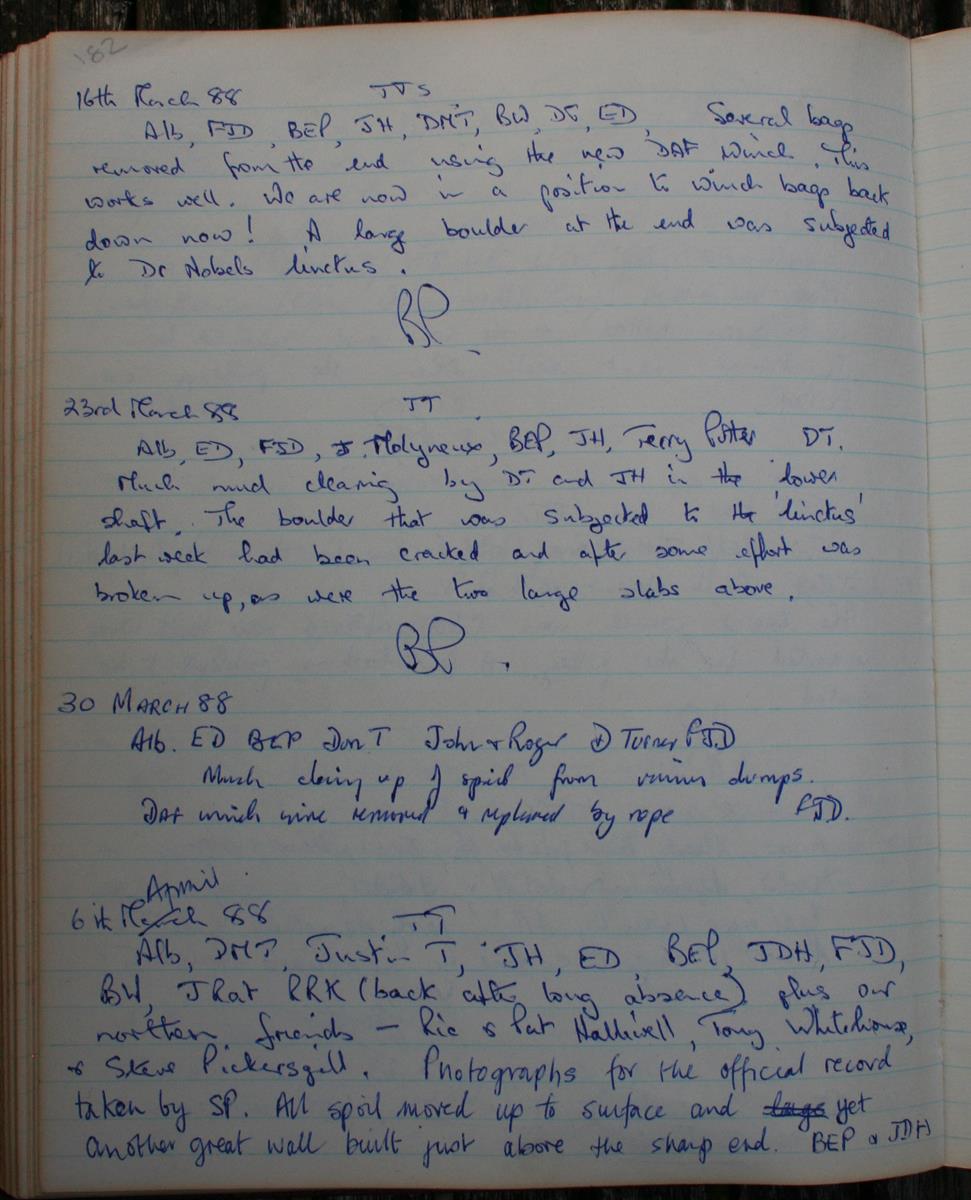 182
16th March 88 TTS
Alb, FJD, BEP, JH, DMT, BW, DT, ED, Several bags
removed from the end using the new DAF winch. This
works well. We are now in a position to winch bags back
down now! A large boulder at the end was subjected
to Dr Nobels linctus.
BP
23rd March 88 TT
Alb, ED, FJD, J. Molyneux, BEP, JH, Terry DT.
Much mud clearing by DT and JH in the lower
shaft. The boulder that was subjected to the 'linctus'
last week had been cracked and after some effort was
broken up, as were the two large slabs above.
BP
30 MARCH 88
Alb. ED BEP Don T John + Roger D Turner FJD
Much clearing up of spoil from various dumps.
DAF winch wire removed & replaced by rope FJD.
April
6th March 88 TT
Alb, DMT, Justin T, JH, ED, BEP, JDH, FJD,
BW, JRat RRK (back after long absence) plus our
northern friends - Ric & Pat Halliwell, Tony Whitehouse,
& Steve Pickersgill. Photographs for the official record
taken by SP. All spoil moved up to surface and yet
another great wall built just above the sharp end. BEP & JDH